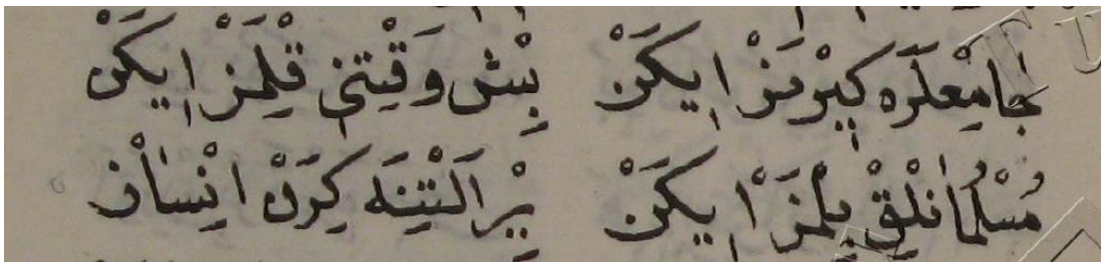 جامِعلَره كيرْمَزْ ايكَنْ بِشْ وَقْتِنى قِلْمَزْ ايكَنْ
مُسْلُمانْلِقْ بِلْمَزْ ايكَنْ يِرْ اَلْتِنَه كِرَنْ اِنْسانْ